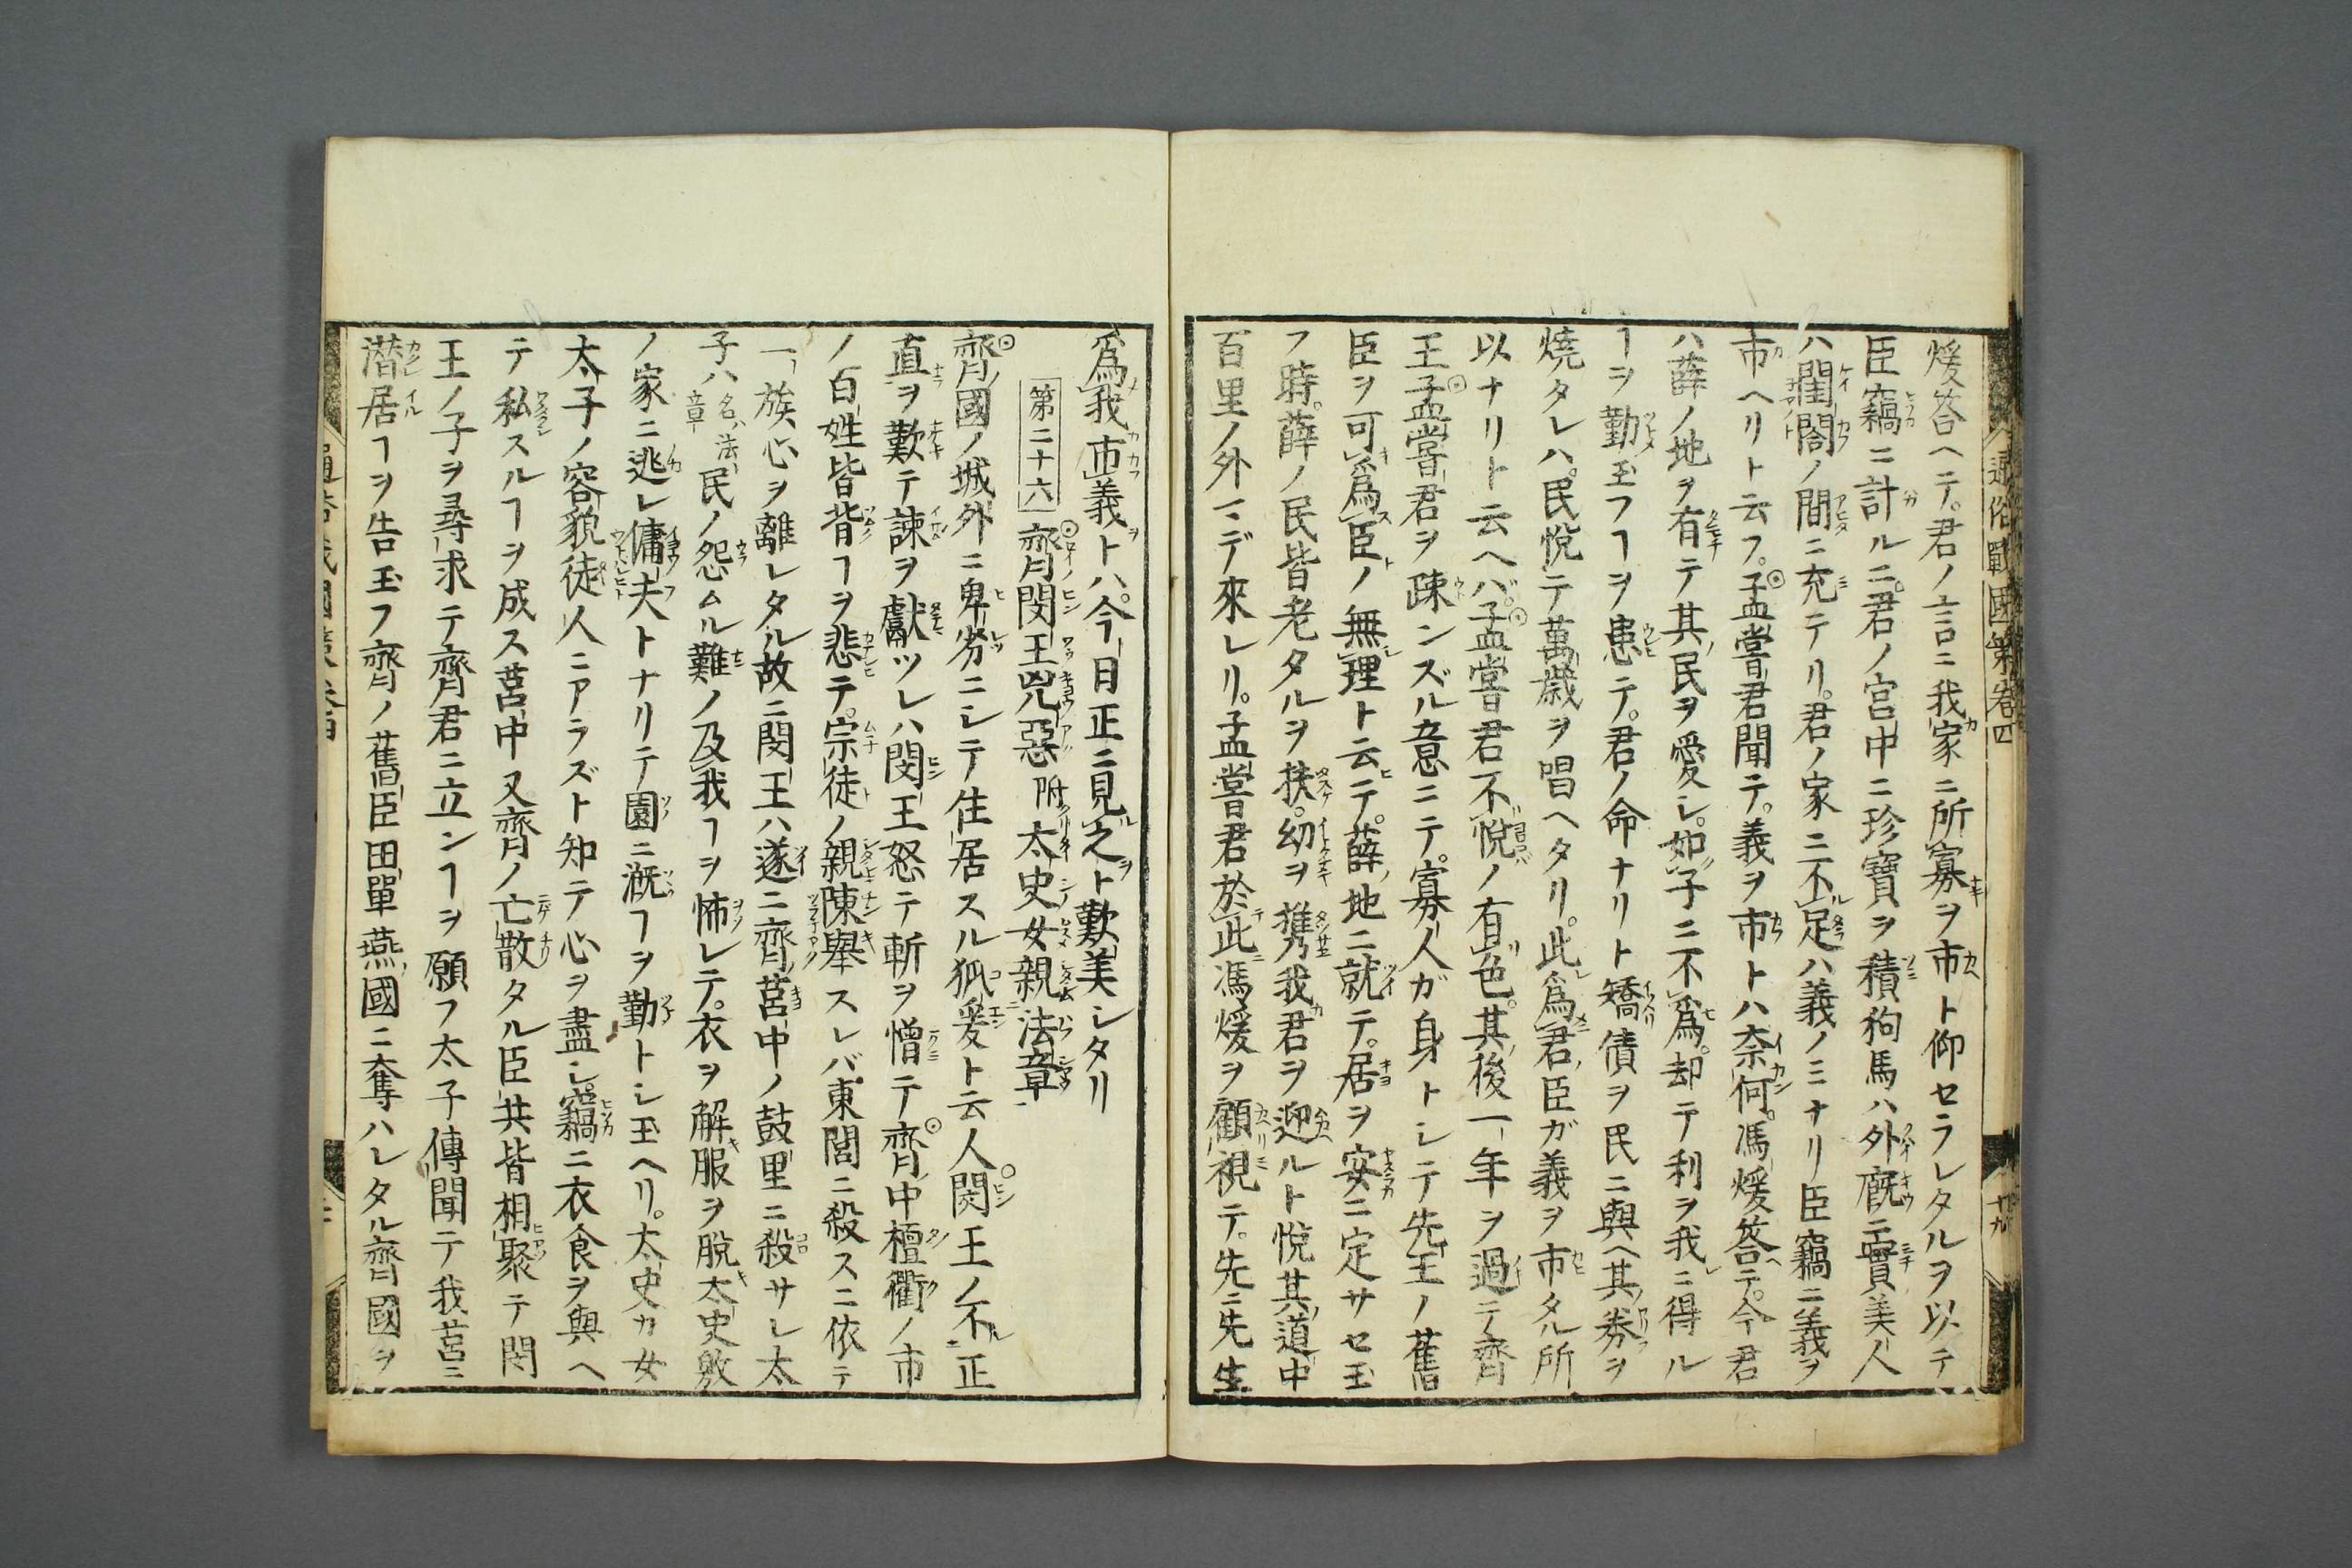 煖答ヘテ。君ノ言ニ我家ニ所寡ヲ市ト仰セラレタルヲ以テ
臣竊ニ計ルニ。君ノ宮中ニ珍寶ヲ積狗馬ハ外廐ニ實美人
ハ閨閤ノ間ニ充テリ。君ノ家ニ不足ハ義ノミナリ臣竊ニ義ヲ
市ヘリト云フ。孟嘗君聞テ。義ヲ市トハ奈何。馮煖答テ。今君
ハ薛ノ地ヲ有テ其民ヲ愛シ。如子ニ不爲。却テ利ヲ我ニ得ル
ヿヲ勤玉フヿヲ患テ。君ノ命ナリト矯債ヲ民ニ與ヘ其券ヲ
燒タレハ。民悅テ萬歲ヲ唱ヘタリ。此爲君臣ガ義ヲ市タル所
以ナリト云ヘバ。孟嘗君不悅ノ有色。其後一年ヲ過テ齊
王孟嘗君ヲ疎ンズル意ニテ。寡人ガ身トシテ先王ノ舊
臣ヲ可爲臣ノ無理ト云テ。薛地ニ就テ。居ヲ安ニ定サセ玉
フ時。薛ノ民皆老タルヲ扶。幼ヲ携我君ヲ迎ルト悅其道中
百里ノ外マデ來レリ。孟嘗君於此馮煖ヲ顧視テ。先ニ先生
爲我市義トハ。今日正ニ見之ト歎美シタリ
第二十六 齊閔王兇惡 附太史女親法章
齊國ノ城外ニ卑劣ニシテ住居スル狐爰ト云人。閔王ノ不正
直ヲ歎テ諫ヲ獻ツレハ閔王怒テ斬ヲ憎テ齊中檀衢ノ市
ノ百姓皆背ヿヲ悲テ。宗徒ノ親陳舉スレバ東閭ニ殺スニ依テ
一族心ヲ離レタル故ニ閔王ハ遂ニ齊莒中ノ鼓里ニ殺サレ太
子ハ名ハ法章民ノ怨ムル難ノ及我ヿヲ怖レテ。衣ヲ解服ヲ脫太史敫
ノ家ニ逃レ傭夫トナリテ園ニ漑ヿヲ勤トシ玉ヘリ。太史カ女
太子ノ容貌徒人ニアラズト知テ心ヲ盡シ。竊ニ衣食ヲ與ヘ
テ私スルヿヲ成ス莒中又齊ノ亡散タル臣共皆相聚テ閔
王ノ子ヲ尋求テ齊君ニ立ンヿヲ願フ太子傳聞テ我莒ニ
潛居ヿヲ告玉フ齊ノ舊臣田單燕國ニ奪ハレタル齊國ヲ
通俗戰國策卷四
十九